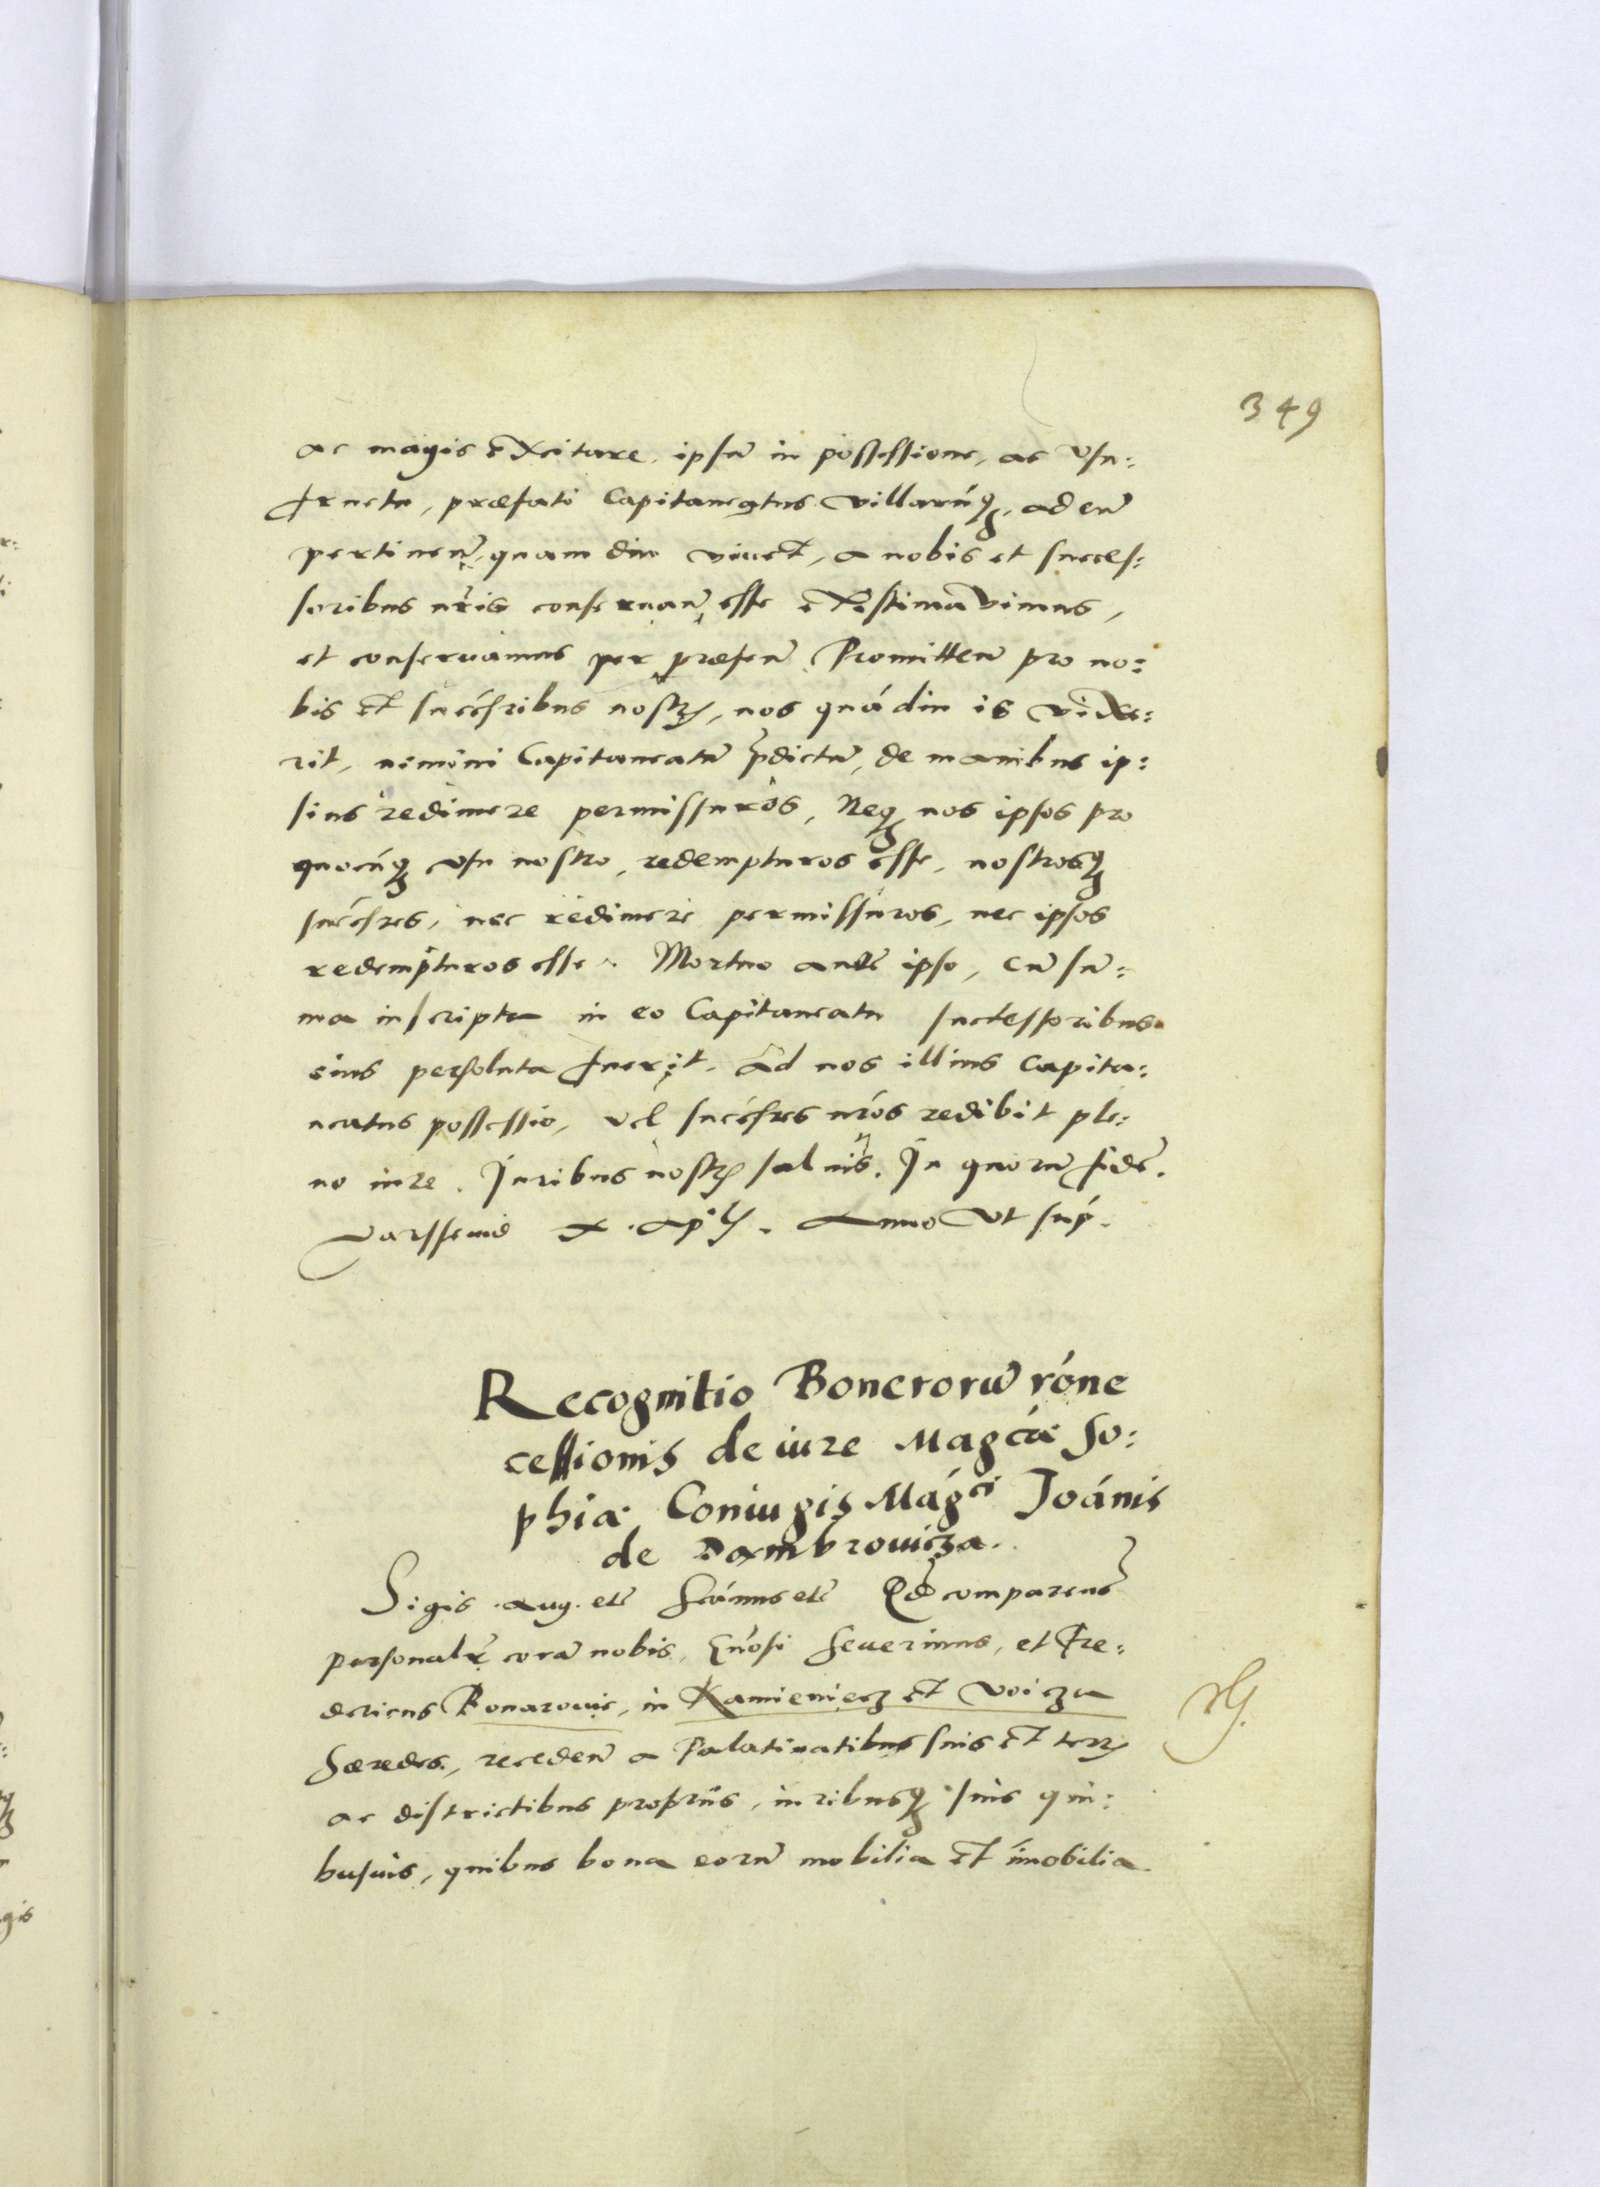 349
ac magis excitare, ipsū in possessione, ac vsu:
fructu, præfati Capitaneatus villarūq, ad eū
pertineñ, quam diu viuet, a nobis et succes:
soribus nr̄is conseruañ esse existimavimus,
et conseruamus per præseñ. Promitteñ pro no:
bis et succ̄sribus nostrꝭ, nos quādiu is vixe:
rit, nemini Capitaneatū p̄dictū, de manibus ip:
sius redimere permissuros, Neq nos ipsos pro
quocūq vsu nostro, redempturos esse, nostrosq
succ̄sres, nec redimere permissuros, nec ipsos
redempturos esse. Mortuo autē ipso, cū sū:
ma inscripta in eo Capitaneatu successoribus
eius persoluta fuerit, ad nos illius Capita:
neatus possessio, vel succ̄sres nr̄os redibit ple:
no iure. Juribus nostrꝭ saluis. In quorū fidē.
Varssauiæ X. Aplꝭ. Anno vt supͣ.
Recognitio Bonerorū rōne
cessionis de iure Magcæ So:
phiæ Coniugis Magci Joānis
de Dambrowicza.
Sigis. Aug. etc̄ scāmus etc̄ Qd̄ comparenẽs
personalr̄ corā nobis, Gn̄osi Seuerinus, et Fre:
dericus Bonarowie, in Kamieniecz et Voicza
hæredes, recedeñ a Palatinatibus suis et terrꝭ
ac districtibus proprijs, iuribusq suis qui:
busuis, quibus bona eorū mobilia et īmobilia